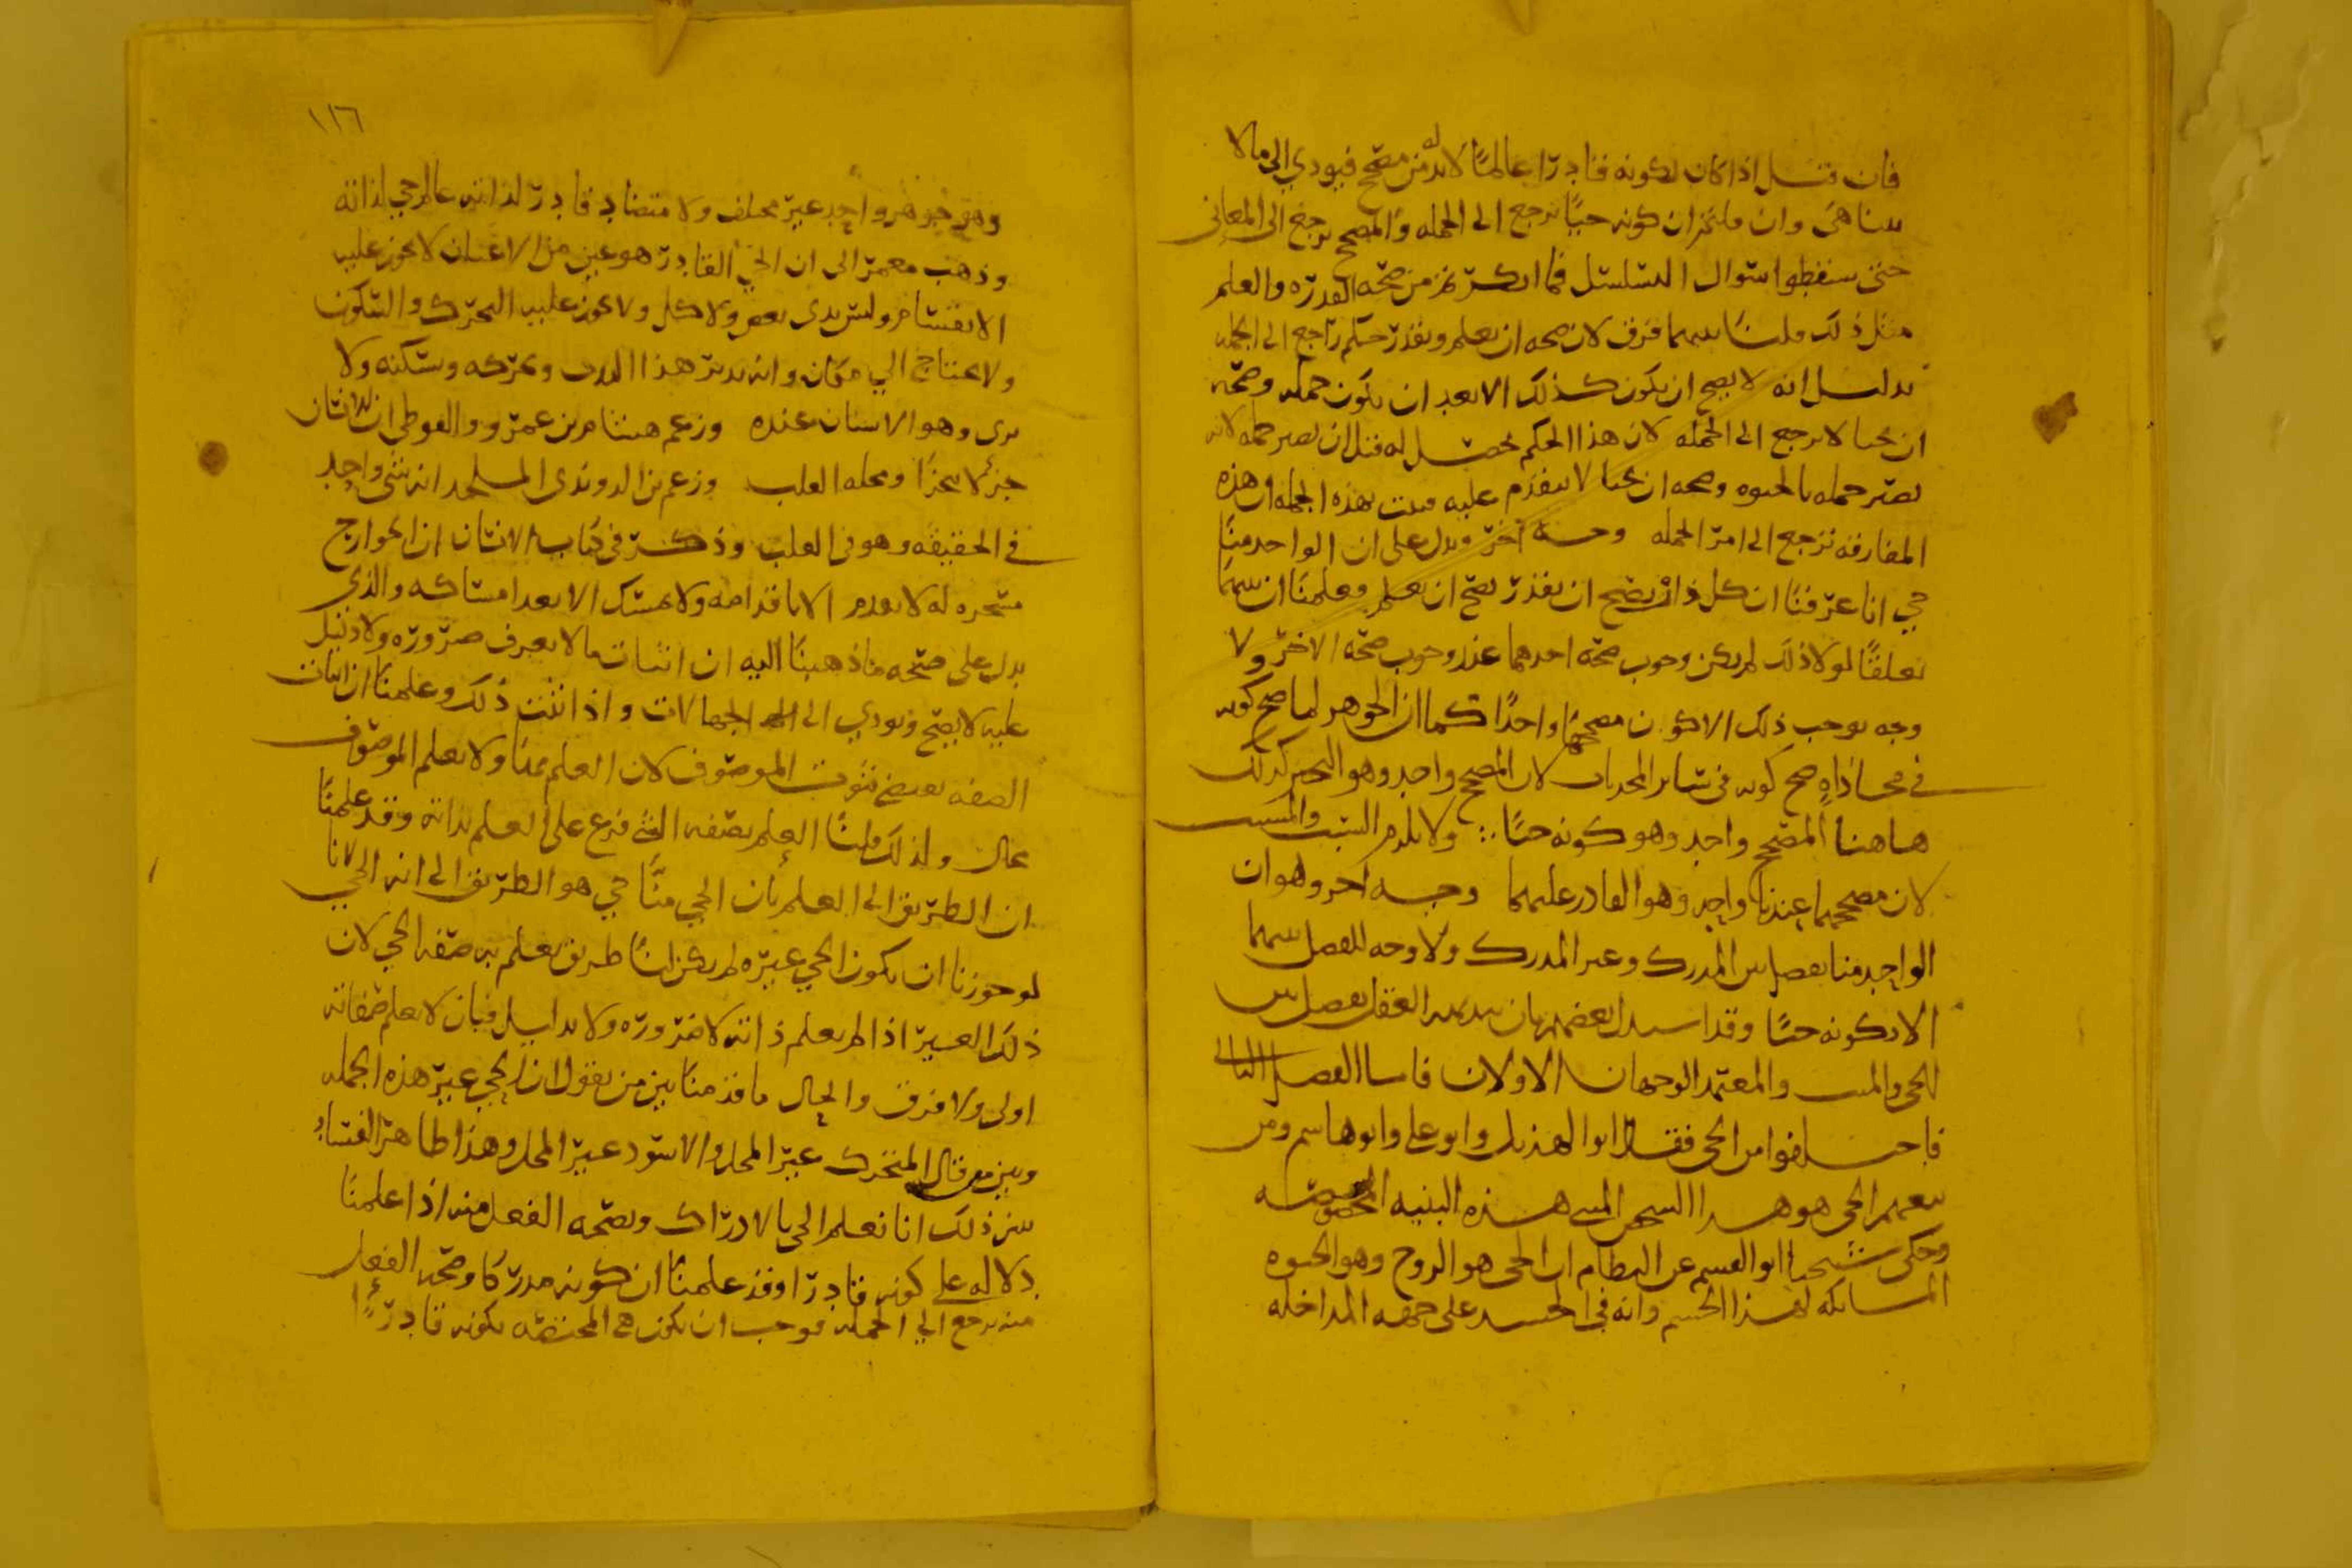 فان قيل اذا كان لكونه قادرا عالما لا بد له من مصحح فيودي الى ما لا
يتناهى وان قلتم ان كونه حيا يرجع الى الجمله والمصحح يرجع الى المعاني
حتى سقطوا سوال التسلسل فما انكرتم من صحه القدره والعلم
مثل ذلك قلنا بينهما فرق لان صحه ان يعلم ويقدر حكم راجع الى الجمله
بدليل انه لا يصح ان يكون كذلك الا بعد ان يكون جمله وصحه
ان يحيا لا يرجع الى الجمله لان هذا الحكم يحصل له قبل ان يصير جمله لانه
يصير جمله بالحيوه وصحه ان يحيا لا يتقدم عليه فبت بهذه الجمله ان هذه
المفارقه ترجع الى امر الجمله وجه اخر ويدل على ان الواحد منا
حي انا عرفنا ان كل ذات يصح ان يقدر يصح ان يعلم وعلمنا ان بينهما
تعلقا لولا ذلك لم يكن وجوب صحه احدهما عند وجوب صحه الاخر ولا
وجه يوجب ذلك الا كون مصححهما واحدا كما ان الجوهر لما صح كونه
في محاذاه صح كونه في سائر المحاذيات لان المصحح واحد وهو التحيز كذلك
هاهنا المصحح واحد وهو كونه حيا ولا يلزم السبب والمسبب
لان مصححهما عندنا واحد وهو القادر عليهما وجه اخر وهو ان
الواحد منا يفصل بين المدرك وغير المدرك ولا وجه للفصل بينهما
الا لكونه حيا وقد استدل بعضهم بان ببديهه العقل يفصل بين
الحي والميت والمعتمد الوجهان الاولان فاما الفصل الثاني
فاختلفوا من الحي فقال ابو الهذيل وابو علي وابو هاشم ومن
تبعهم الحي هو هذا الشخص المبني هذه البنيه المخصوصه
وحكى شيخنا ابو القسم عن النظام ان الحي هو الروح وهو الحيوه
المشابكه لهذا الجسم وانه في الجسد على جهه المداخله
١١٦
وهو جوهر واحد غير مختلف ولا متضاد قادر لذاته عالم حي لذاته
وذهب معمر الى ان الحي القادر هو عين من الاعيان لا يجوز عليه
الانقسام وليس بذي بعض ولا كل ولا يجوز عليه التحرك والسكون
ولا يحتاج الى مكان وانه يدبر هذا البدن ويحركه ويسكنه ولا
يرى وهو الانسان عنده وزعم هشام بن عمرو الفوطي ان الانسان
جزء لا يتجزا ومحله القلب وزعم بن الروندي الملحد انه شي واحد
في الحقيقه وهو في القلب وذكر في كتاب الانسان ان الجوارح
مسخره له لا تقدم الا باقدامه ولا تمسك الا بعد امساكه والذي
يدل على صحه ما ذهبنا اليه ان اثبات ما لا يعرف ضروره ولا دليل
عليه لا يصح ويودي الى الجهالات واذا ثبت ذلك وعلمنا ان اثبات
الصفه يقتضي ثبوت الموصوف لان العلم بها ولا يعلم الموصوف
محال ولذلك قلنا العلم بصفه الشي فرع على العلم بذاته وقد علمنا
ان الطريق الى العلم بان الحي منا حي هو الطريق الى انه الحي لانا
لو جوزنا ان يكون الحي غيره لم يكن لنا طريق نعلم به صفه الحي لان
ذلك الغير اذا لم يعلم ذاته لا ضروره ولا بدليل فبان لا يعلم صفاته
اولى ولا فرق والحال ما قدمنا بين من يقول ان الحي غير هذه الجمله
وبين من قال المتحرك غير المحل والاسود غير المحل وهذا ظاهر الفساد
يبين ذلك انا نعلم الحي بالادراك وبصحه الفعل منه اذا علمنا
دلاله على كونه قادرا وقد علمنا ان كونه مدركا وصحه الفعل
منه يرجع الى الجمله فوجب ان يكون هي المختصه بكونه قادرا